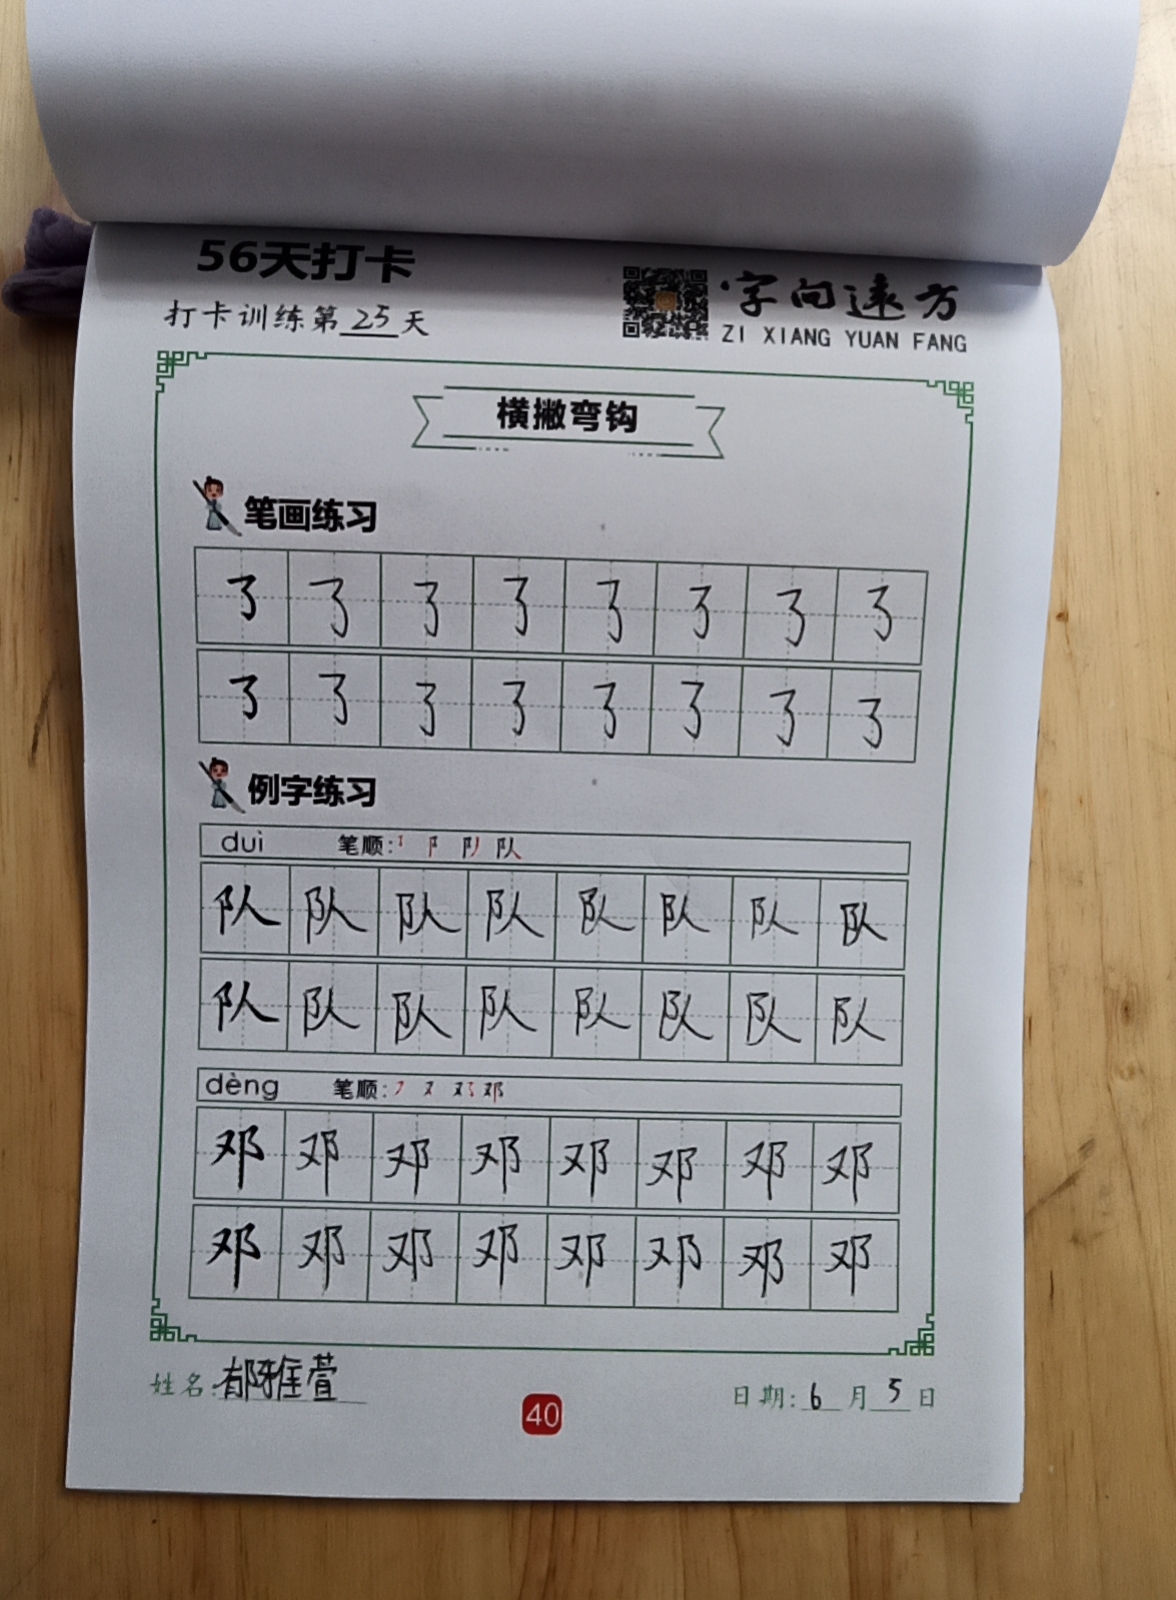 56天打卡
打卡训练第25天
字向远方
ZI XIANG YUAN FANG
横撇弯钩
笔画练习
例字练习
duì 笔顺:
队队队队队队队队
队队队队队队队队
dèng 笔顺:
邓邓邓邓邓邓邓邓
邓邓邓邓邓邓邓邓
姓名:郁雅萱
日期:6月5日
40